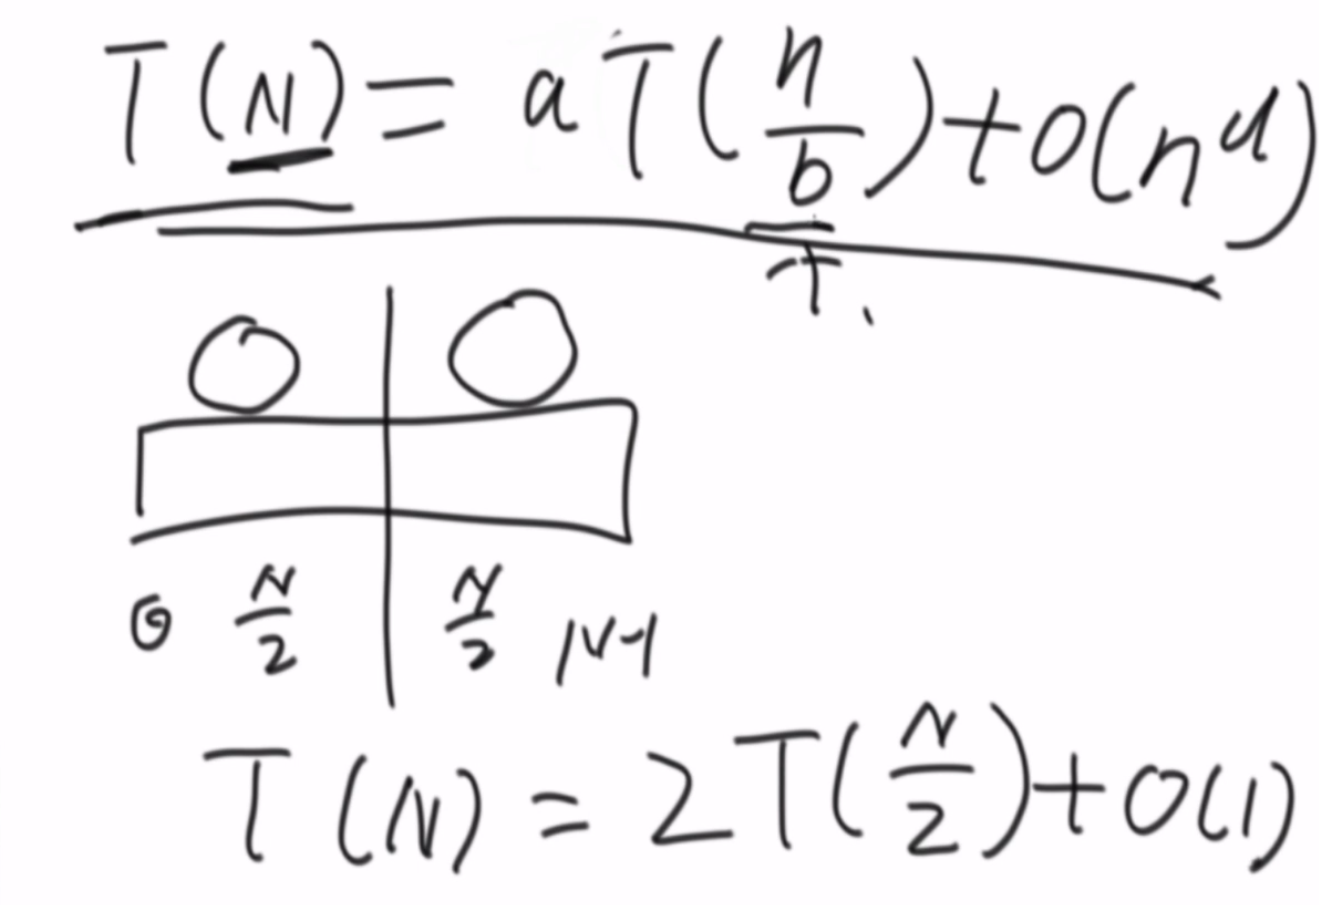 T(N) = aT(n/b) + O(n^d)
0 N/2 N/2 N-1
T(N) = 2T(N/2) + O(1)